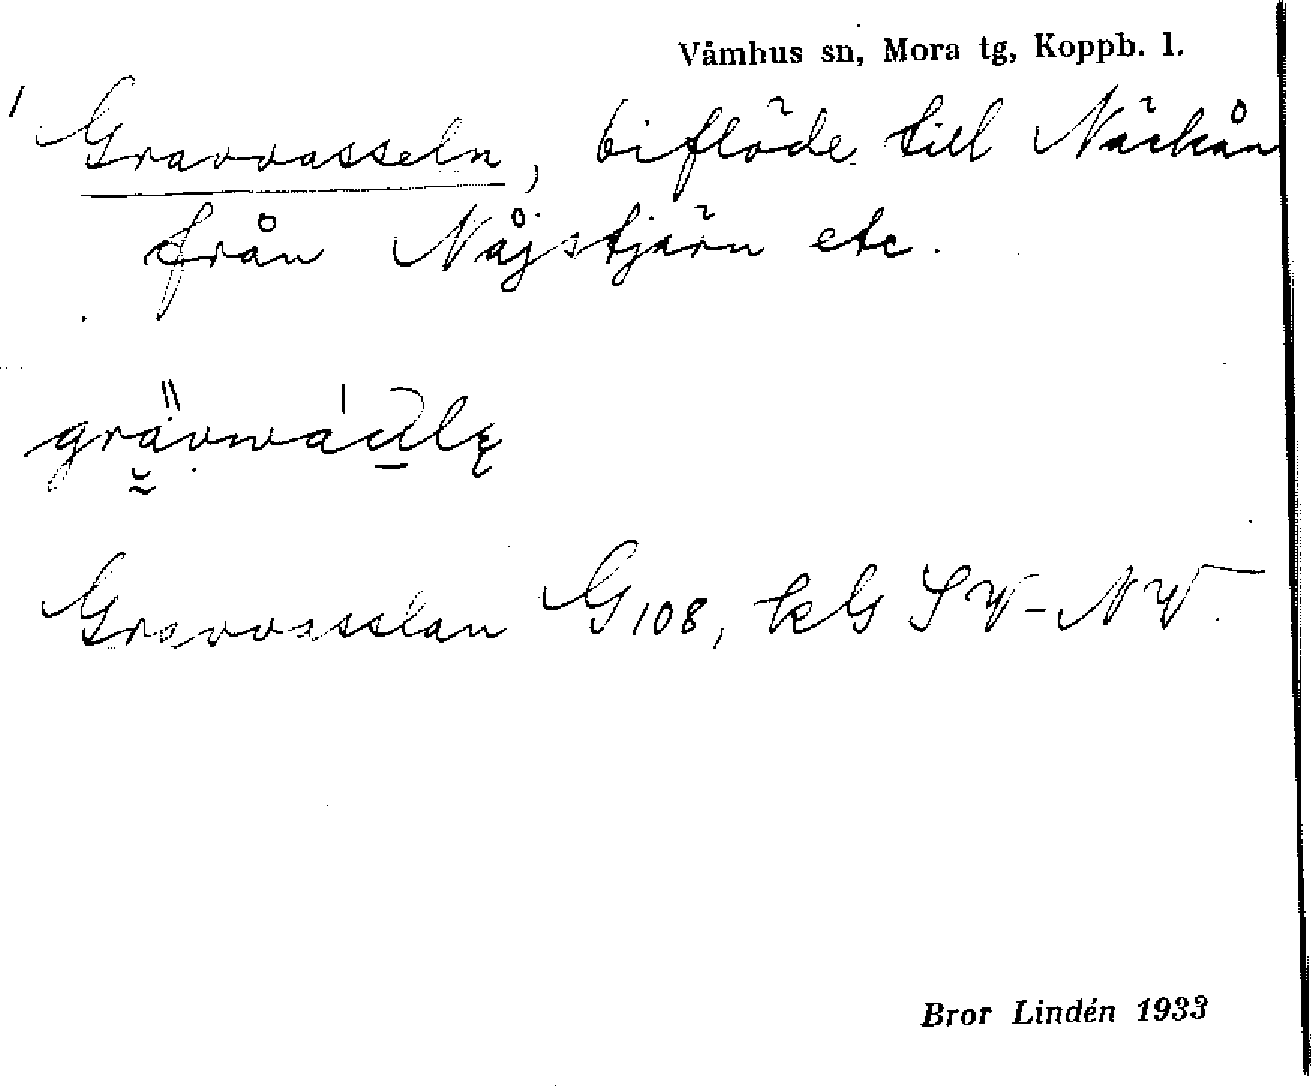 Våmhus sn, Mora tg, Koppb. l.
Gravvasseln, biflöde till Näckån
från Nåjstjärn etc.
Gravvasslan G108, kbl SV-NV
Bror Lindén 1933